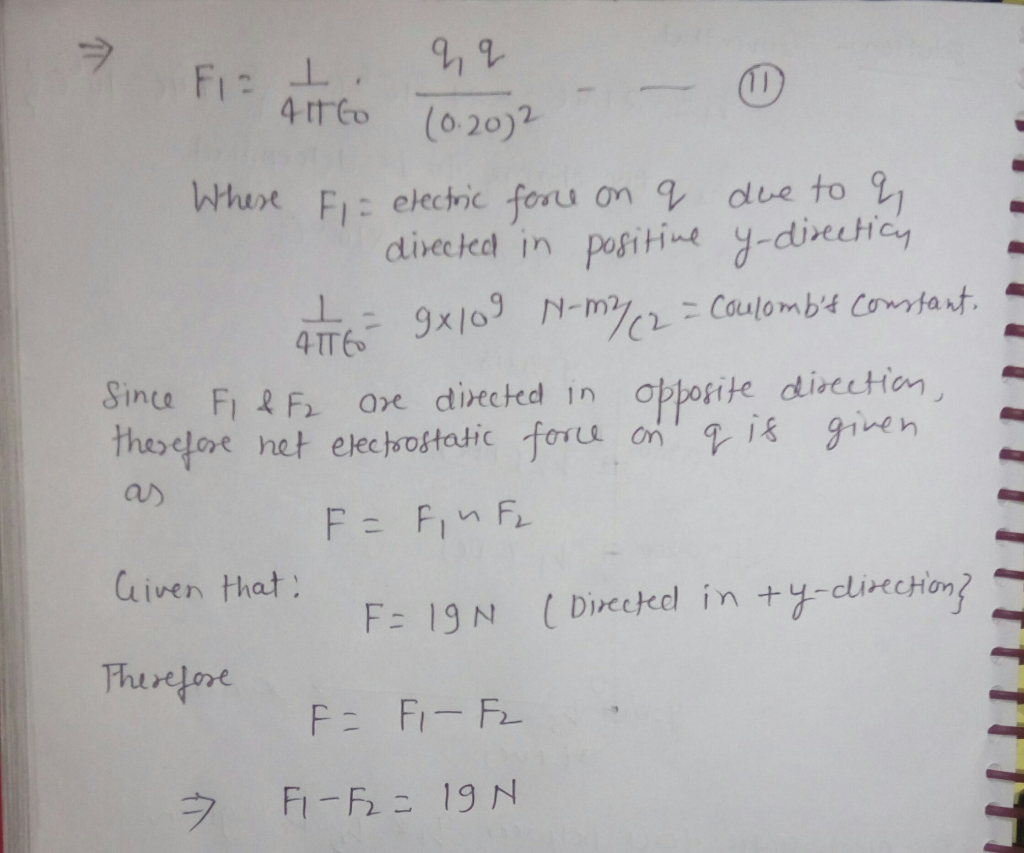 ⇒ F1 = 1/4π∈0 · q1 q/(0.20)² - — (11)
Where F1 = electric force on q due to q1
directed in positive y-direction
1/4π∈0 = 9x10⁹ N-m²/C² = Coulomb's constant.
Since F1 & F2 are directed in opposite direction,
therefore net electrostatic force on q is given
as
F = F1 ~ F2
Given that:
F = 19 N (Directed in +y-direction}
Therefore
F = F1 — F2
⇒ F1 - F2 = 19 N